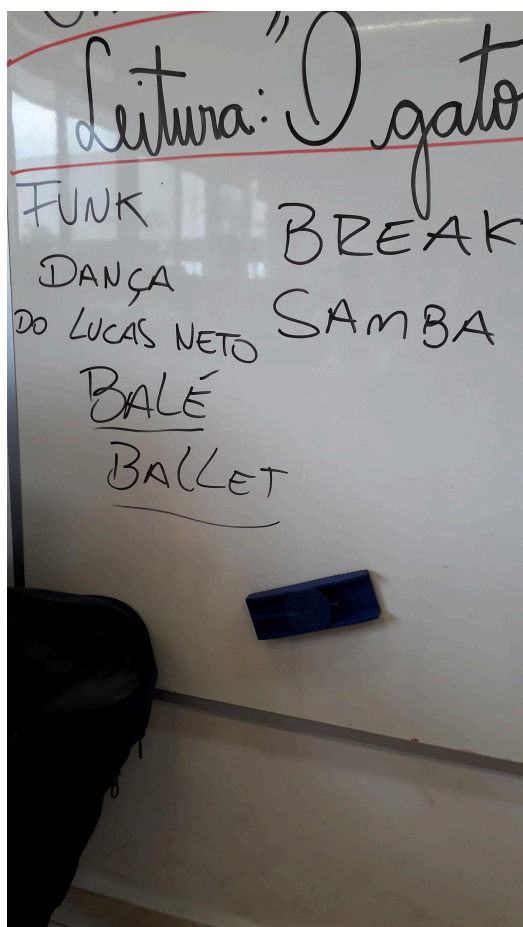 Leitura: "O gato
FUNK
DANÇA
DO LUCAS NETO
BALÉ
BALLET
BREAK
SAMBA